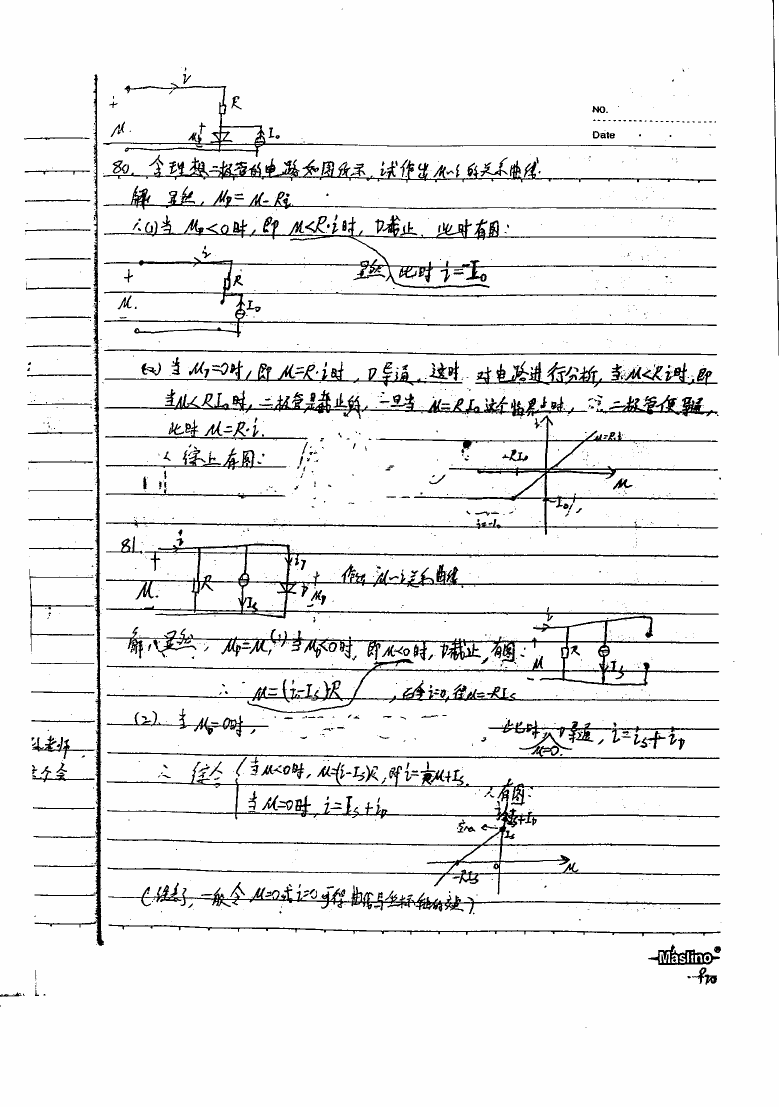 NO.
Date
i
+
R
u
+
u_D
I₀
80. 含理想二极管的电路如图所示,试作出u-i的关系曲线.
解: 显然, u_D=u-Ri
∴(1)当u_D<0时,即u<R·i时, D截止. 此时有图:
i
+
R
显然,此时i=-I₀
u
I₀
-
(2)当u_D=0时,即u=R·i时,D导通,这时对电路进行分析,当u<Ri时,即
当u<RI₀时,二极管是截止的,一旦当u=RI₀这个临界点时,∴二极管便导通,
此时u=R·i.
i
u=Ri
∴综上有图:
-RI₀
u
-I₀
i=-I₀
81.
i
+
i_D
u
R
D
+
u_D
-
作出u-i关系曲线.
I_S
-
i
解: 显然, u_D=u,(1)当u_D<0时,即u<0时,D截止,有图:
+
u
R
I_S
∴ u=(i-I_S)R ,令i=0,得u=-RI_S
(2) 当u_D=0时, , 此时, D导通, i=i_S+i_D
u=0.
∴ 综合 当u<0时, u=(i-I_S)R,即i=1/R u+I_S.
当u=0时, i=I_S+i_D
∴有图:
I_S
0
-RI_S
u
Maslino